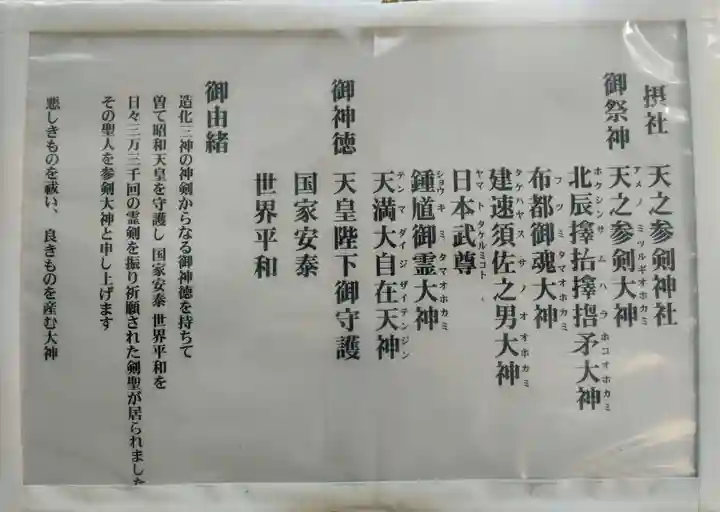 摂社 天之参剣神社
御祭神 天之参剣大神
アメノミツルギオホカミ
北辰擇抬擇捛矛大神
ホクシンサムハラホコオホカミ
布都御魂大神
フツミタマオホカミ
建速須佐之男大神
タケハヤスサノオオホカミ
日本武尊
ヤマトタケルミコト
鍾馗御霊大神
ショウキミタマオホカミ
天満大自在天神
テンマダイジザイテンジン
御神徳 天皇陛下御守護
国家安泰
世界平和
御由緒
造化三神の神剣からなる御神徳を持ちて
曽て昭和天皇を守護し 国家安泰 世界平和を
日々三万三千回の霊剣を振り祈願された剣聖が居られました
その聖人を参剣大神と申し上げます
悪しきものを祓い、良きものを産む大神